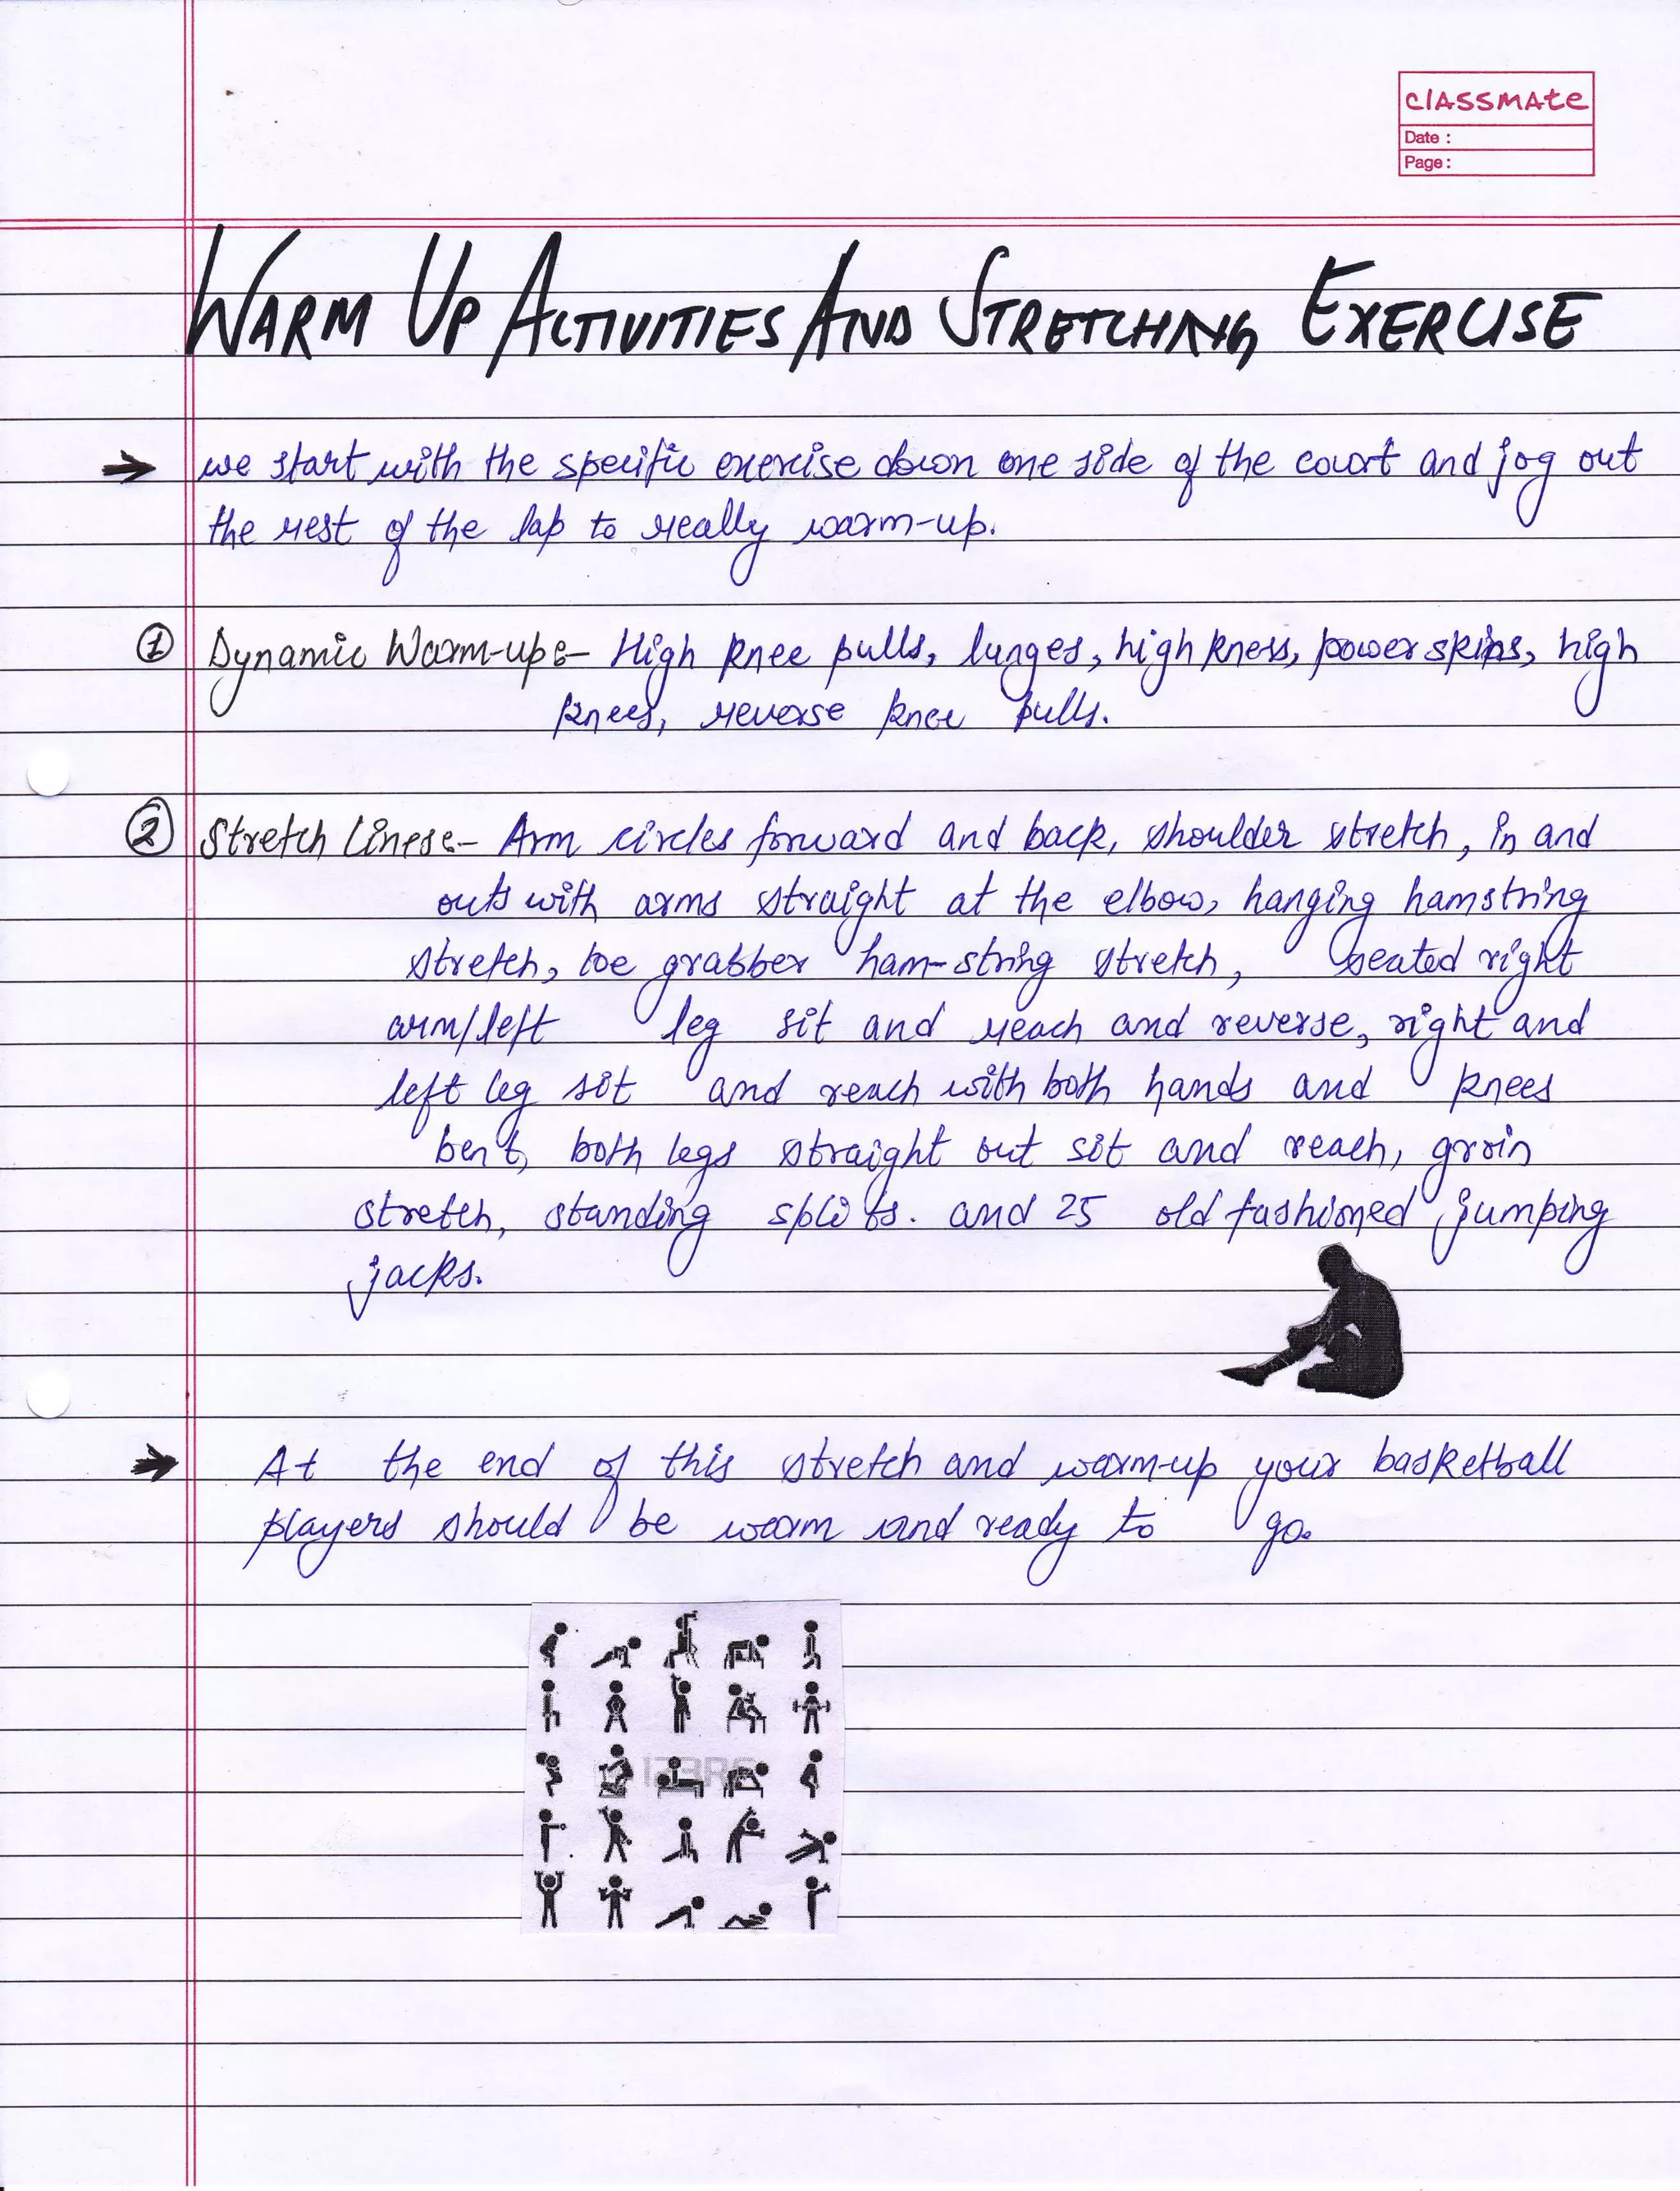 classmate
Date :
Page :
WARM UP ACTIVITIES AND STRETCHING EXERCISE
→ we start with the specific exercise down one side of the court and jog out
the rest of the lap to really warm-up.
① Dynamic Warm-up:- High knee pulls, lunges, high kness, power skips, high
knees, reverse knee pulls.
② Stretch Lines:- Arm circles forward and back, shoulder stretch, in and
outs with arms straight at the elbow, hanging hamstring
stretch, toe grabber ham-string stretch, seated right
arm/left leg sit and reach and reverse, right and
left leg sit and reach with both hands and knees
bent, both legs straight out sit and reach, groin
stretch, standing splits. and 25 old fashioned jumping
jacks.
→ At the end of this stretch and warm-up your basketball
players should be warm and ready to go.